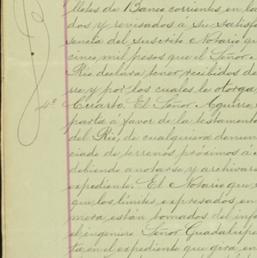 lletes de Banco corrientes en la
dos y revisados á Su Satisf
sencia del Suscrito Notario qu
cinco mil pesos que el Señor
Rio declara tener recibidos de
ra y por los cuales le otorga
4ª Cuarta. El Señor Aguirre
parta á favor de la testamento
del Rio, de cualquiera denun
ciado de terrenos próximos á
debiendo anotarse y archivars
expediente. El Notario que
que los límites expresados en
mera están tomados del inf
el ingeniero Señor Guadalup
ta en el expediente que gira en